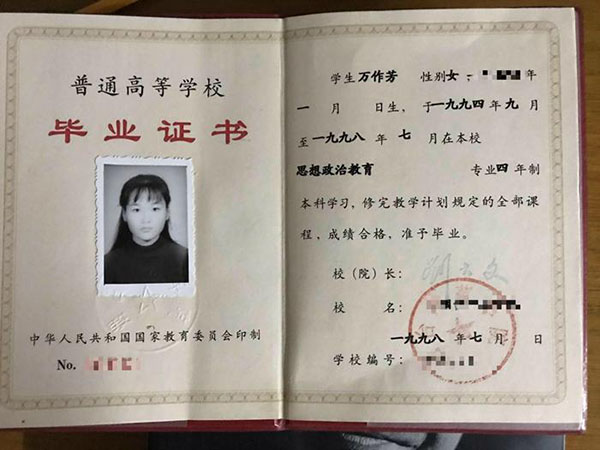 普通高等学校
毕业证书
中华人民共和国国家教育委员会印制
No.
学生 万作芳 性别 女， 年
一 月 日生，于一九九四年九月
至一九九八年 七 月在本校
思想政治教育 专业四年制
本科学习，修完教学计划规定的全部课
程，成绩合格，准予毕业。
校（院）长：
校 名：
一九九八年七月 日
学校编号：